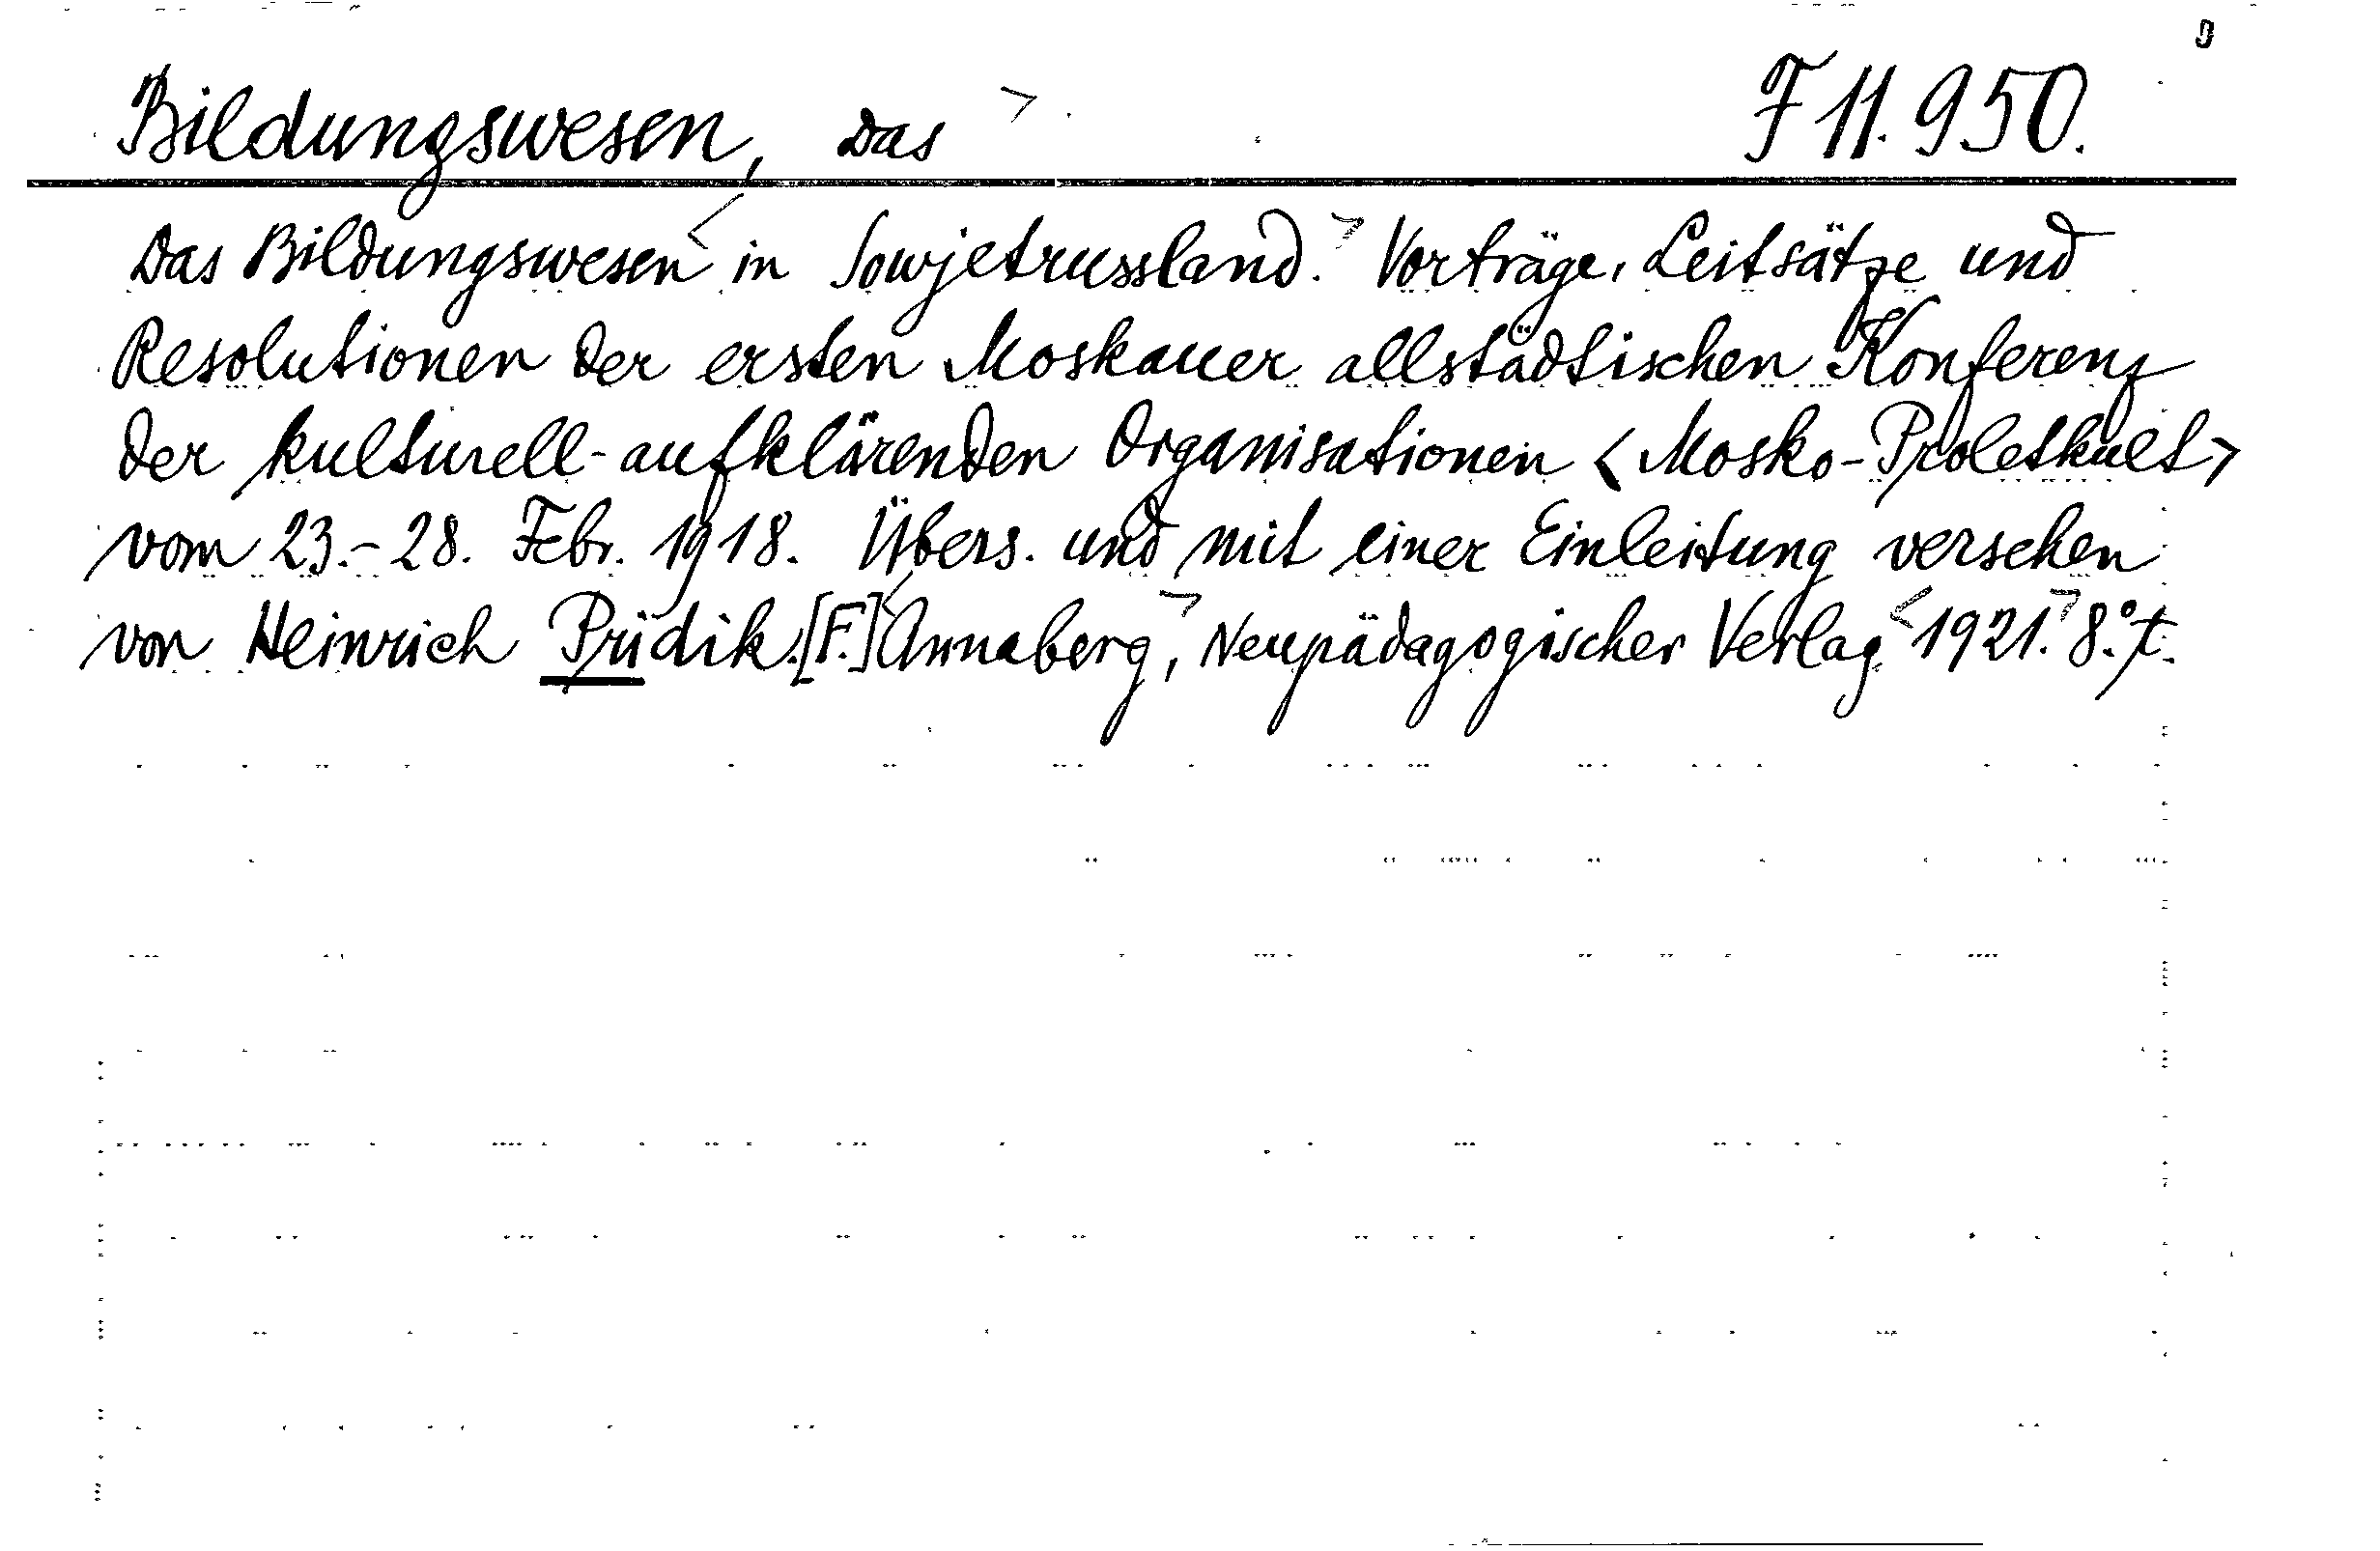 Bildungswesen, Das F 11.950.
Das Bildungswesen in Sowjetrussland. Vorträge, Leitsätze und
Resolutionen der ersten Moskauer allstädtischen Konferenz
der kulturell-aufklärenden Organisationen <Mosko-Proletkult>
vom 23.-28. Febr. 1918. Übers. und mit einer Einleitung versehen
von Heinrich Pridik. [F.] Annaberg, Neupädagogischer Verlag 1921. 8.° t.